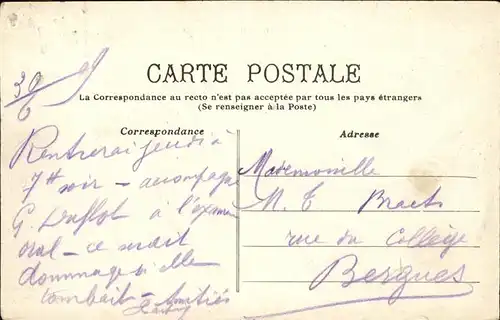 30/6
CARTE POSTALE
La Correspondance au recto n'est pas acceptée par tous les pays étrangers
(Se renseigner à la Poste)
Correspondance
Rentrerai jeudi à
7h soir – accompagne
G. Duflot à l'examen
oral – ce serait
dommage si elle
tombait – Amitiés
Adresse
Mademoiselle
M. T. Braets
rue du Collège
Bergues